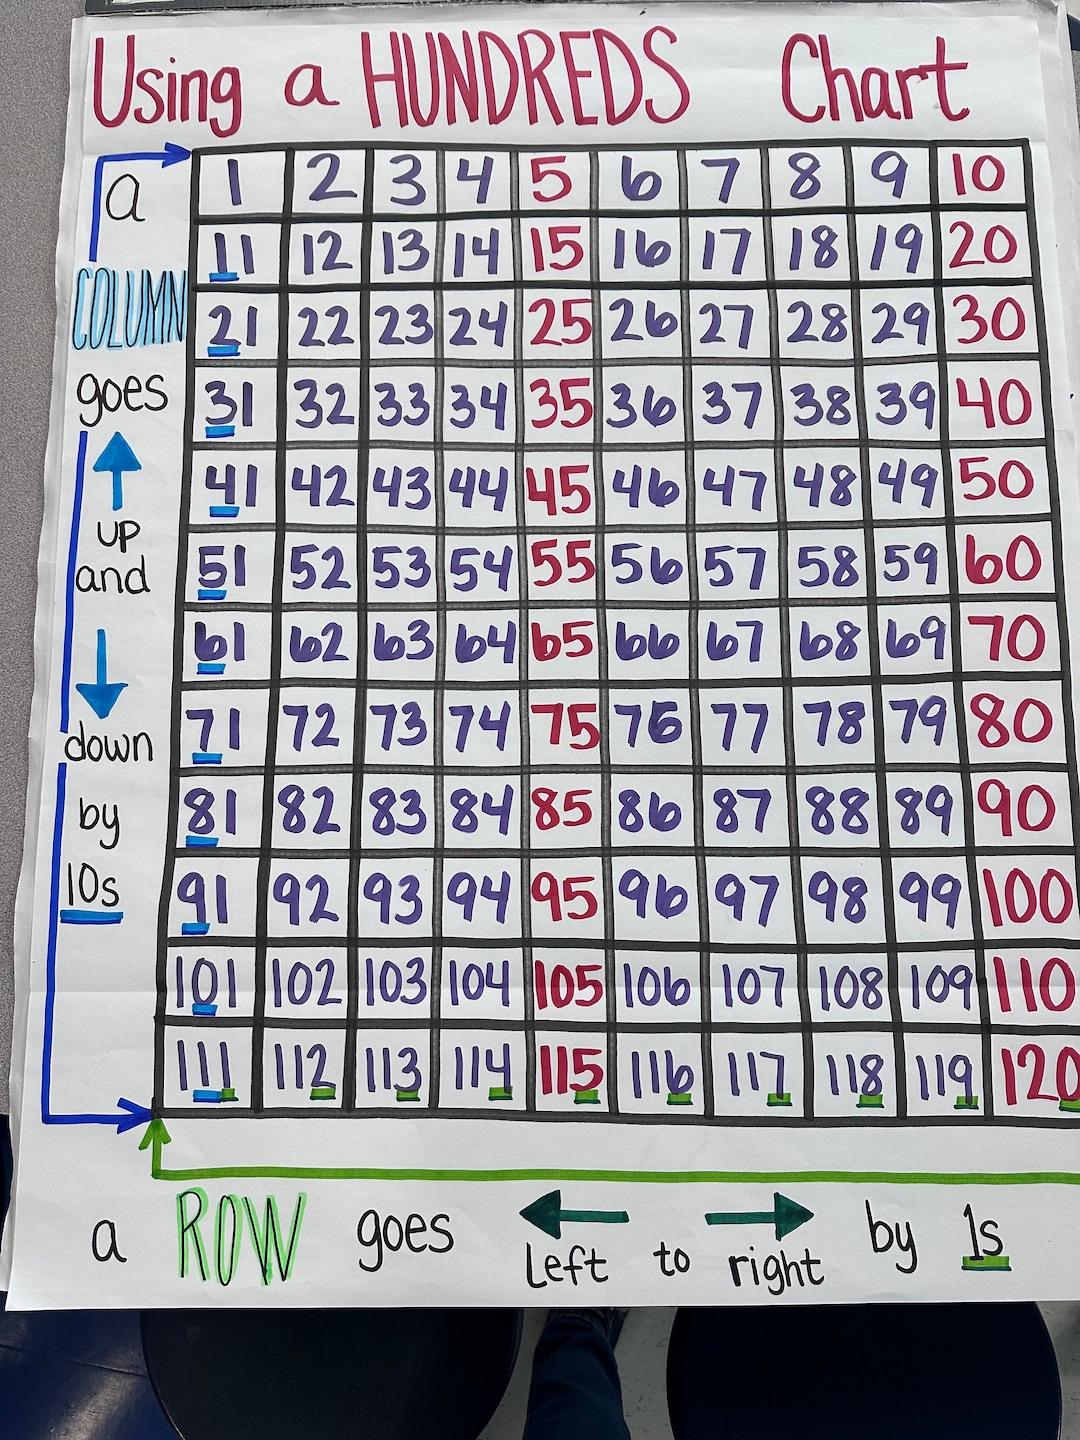 Using a HUNDREDS Chart
a
COLUMN
goes
up
and
down
by
10s
1 2 3 4 5 6 7 8 9 10
11 12 13 14 15 16 17 18 19 20
21 22 23 24 25 26 27 28 29 30
31 32 33 34 35 36 37 38 39 40
41 42 43 44 45 46 47 48 49 50
51 52 53 54 55 56 57 58 59 60
61 62 63 64 65 66 67 68 69 70
71 72 73 74 75 76 77 78 79 80
81 82 83 84 85 86 87 88 89 90
91 92 93 94 95 96 97 98 99 100
101 102 103 104 105 106 107 108 109 110
111 112 113 114 115 116 117 118 119 120
a ROW goes left to right by 1s